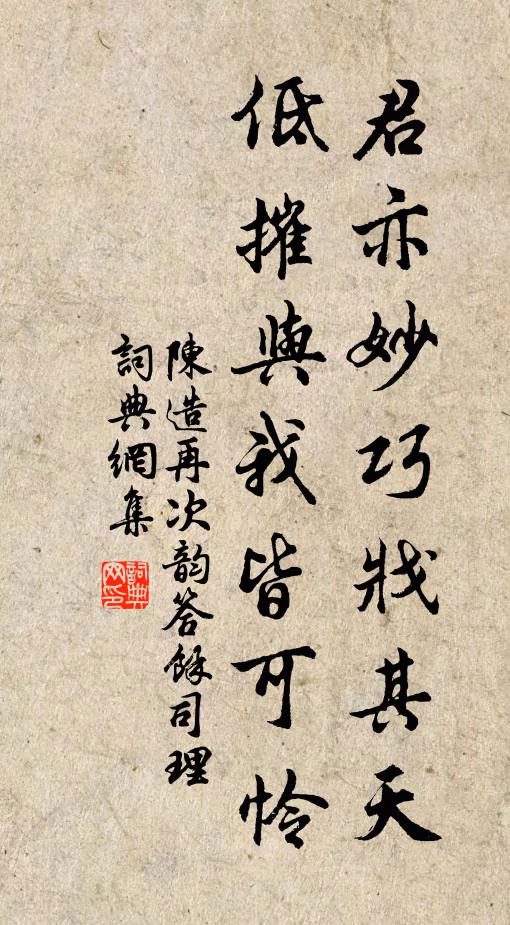 君亦妙巧戕其天
低摧與我皆可怜
陳造再次韵答餘司理
詞典網集
詞典
网印